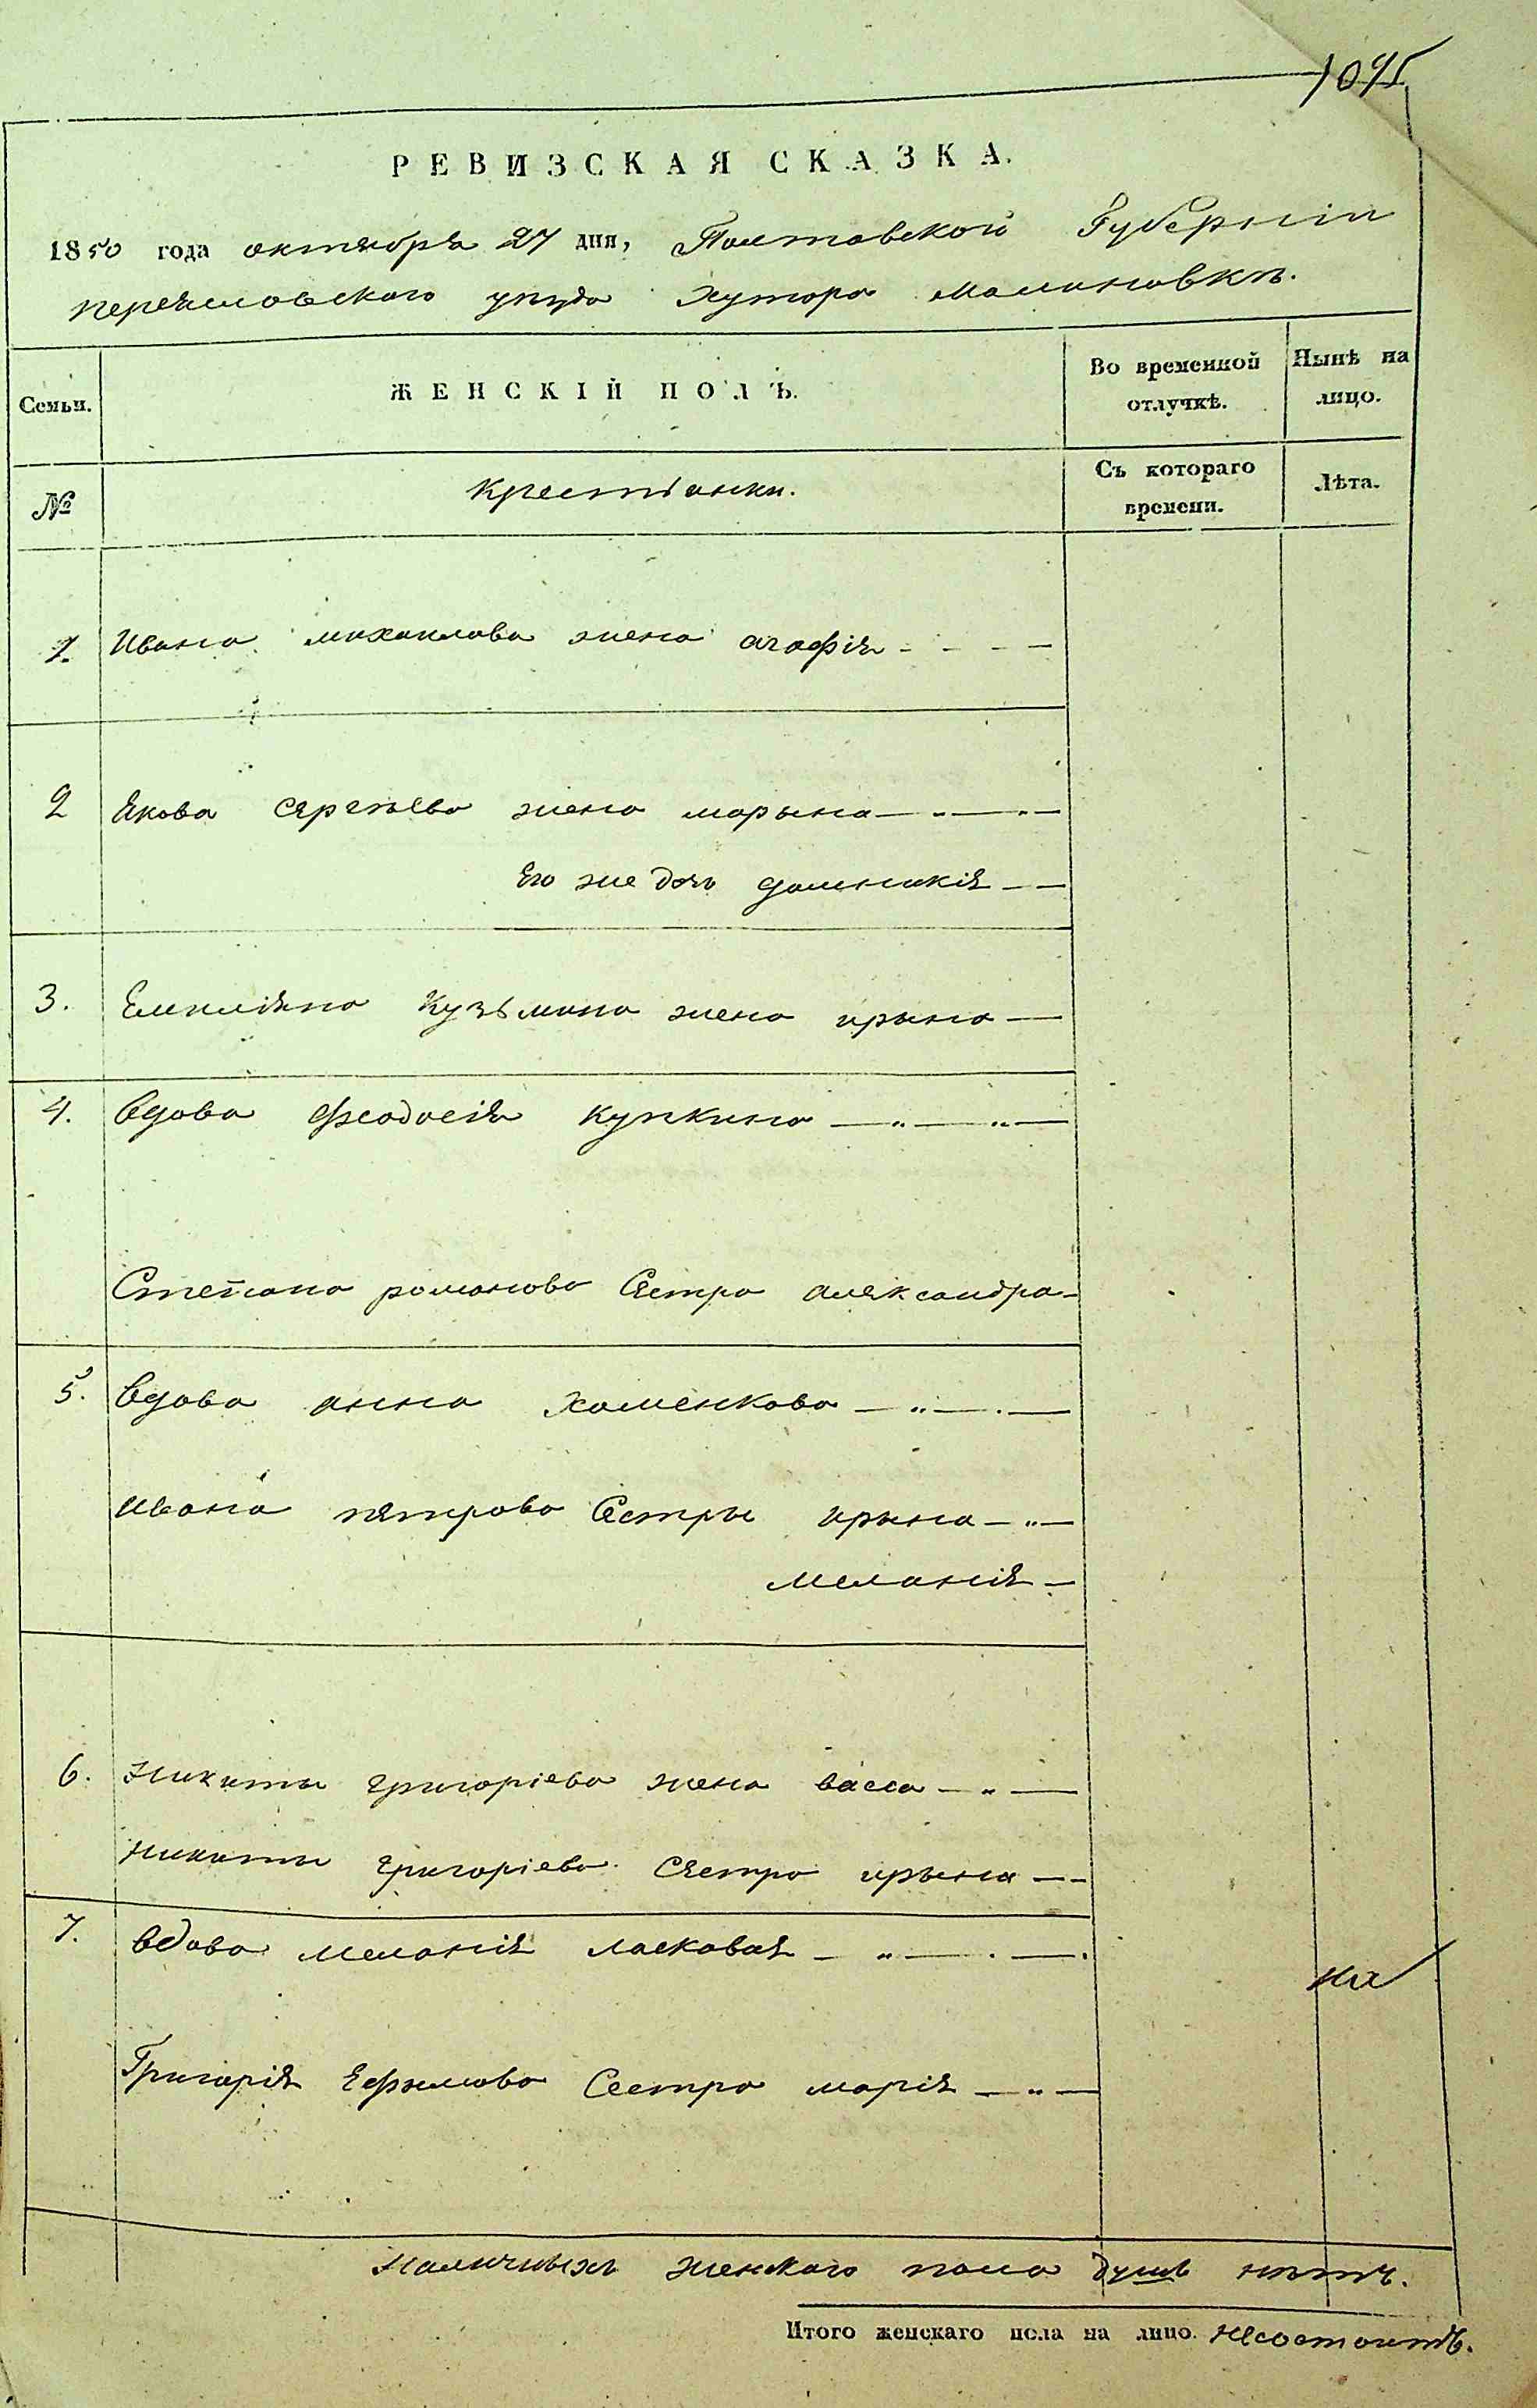 1095
РЕВИЗСКАЯ СКАЗКА.
1850 года октября 27 дня, Полтавской Губерніи
переяславского уѣзда хутора Малиновкѣ.
Семьи.
ЖЕНСКІЙ ПОЛЪ.
Во временной отлучкѣ.
Нынѣ на лицо.
№
Крестьянки.
Съ котораго времени.
Лѣта.
1. Ивана михаилова жена агафія
2 Якова сергѣева жена марына
Его же дочь домникія
3. Емиліяна Кузьмина жена ирына
4. Вдова феодосія
Степана романова Сестра александра
5. Вдова анна хоменкова
Ивана петрова Сестры ирына
Меланія
6. Никиты григоріева жена васса
Никиты григоріева Сестра ирына
7. Вдова Меланія ласковая
Григорія Ефимова Сестра марія
на
Наличныхъ женскаго пола душъ нѣтъ.
Итого женскаго пола на лицо. несостоитъ.